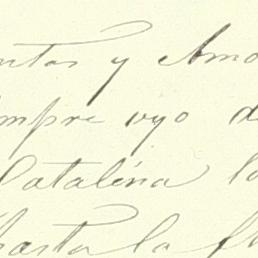 ntos y Amo
empre oyo d
Catalina lo
hasta la f